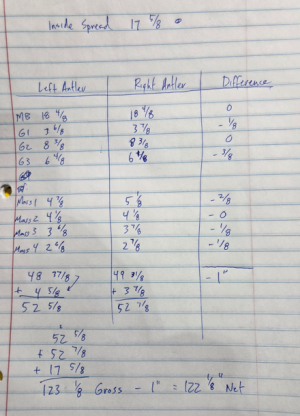 Inside Spread 17 5/8
Left Antler Right Antler Difference
MB 18 4/8 18 4/8 0
G1 3 6/8 3 7/8 - 1/8
G2 8 3/8 8 3/8 0
G3 6 4/8 - 3/8
Mass 1 4 7/8 5 1/8 - 2/8
Mass 2 4 1/8 4 1/8 - 0
Mass 3 3 6/8 3 7/8 - 1/8
Mass 4 2 6/8 2 7/8 - 1/8
48 49 - 1"
+ 4 5/8 + 3 7/8
52 5/8 52 7/8
52 5/8
+ 52 7/8
+ 17 5/8
123 1/8 Gross - 1" = 122 1/8" Net